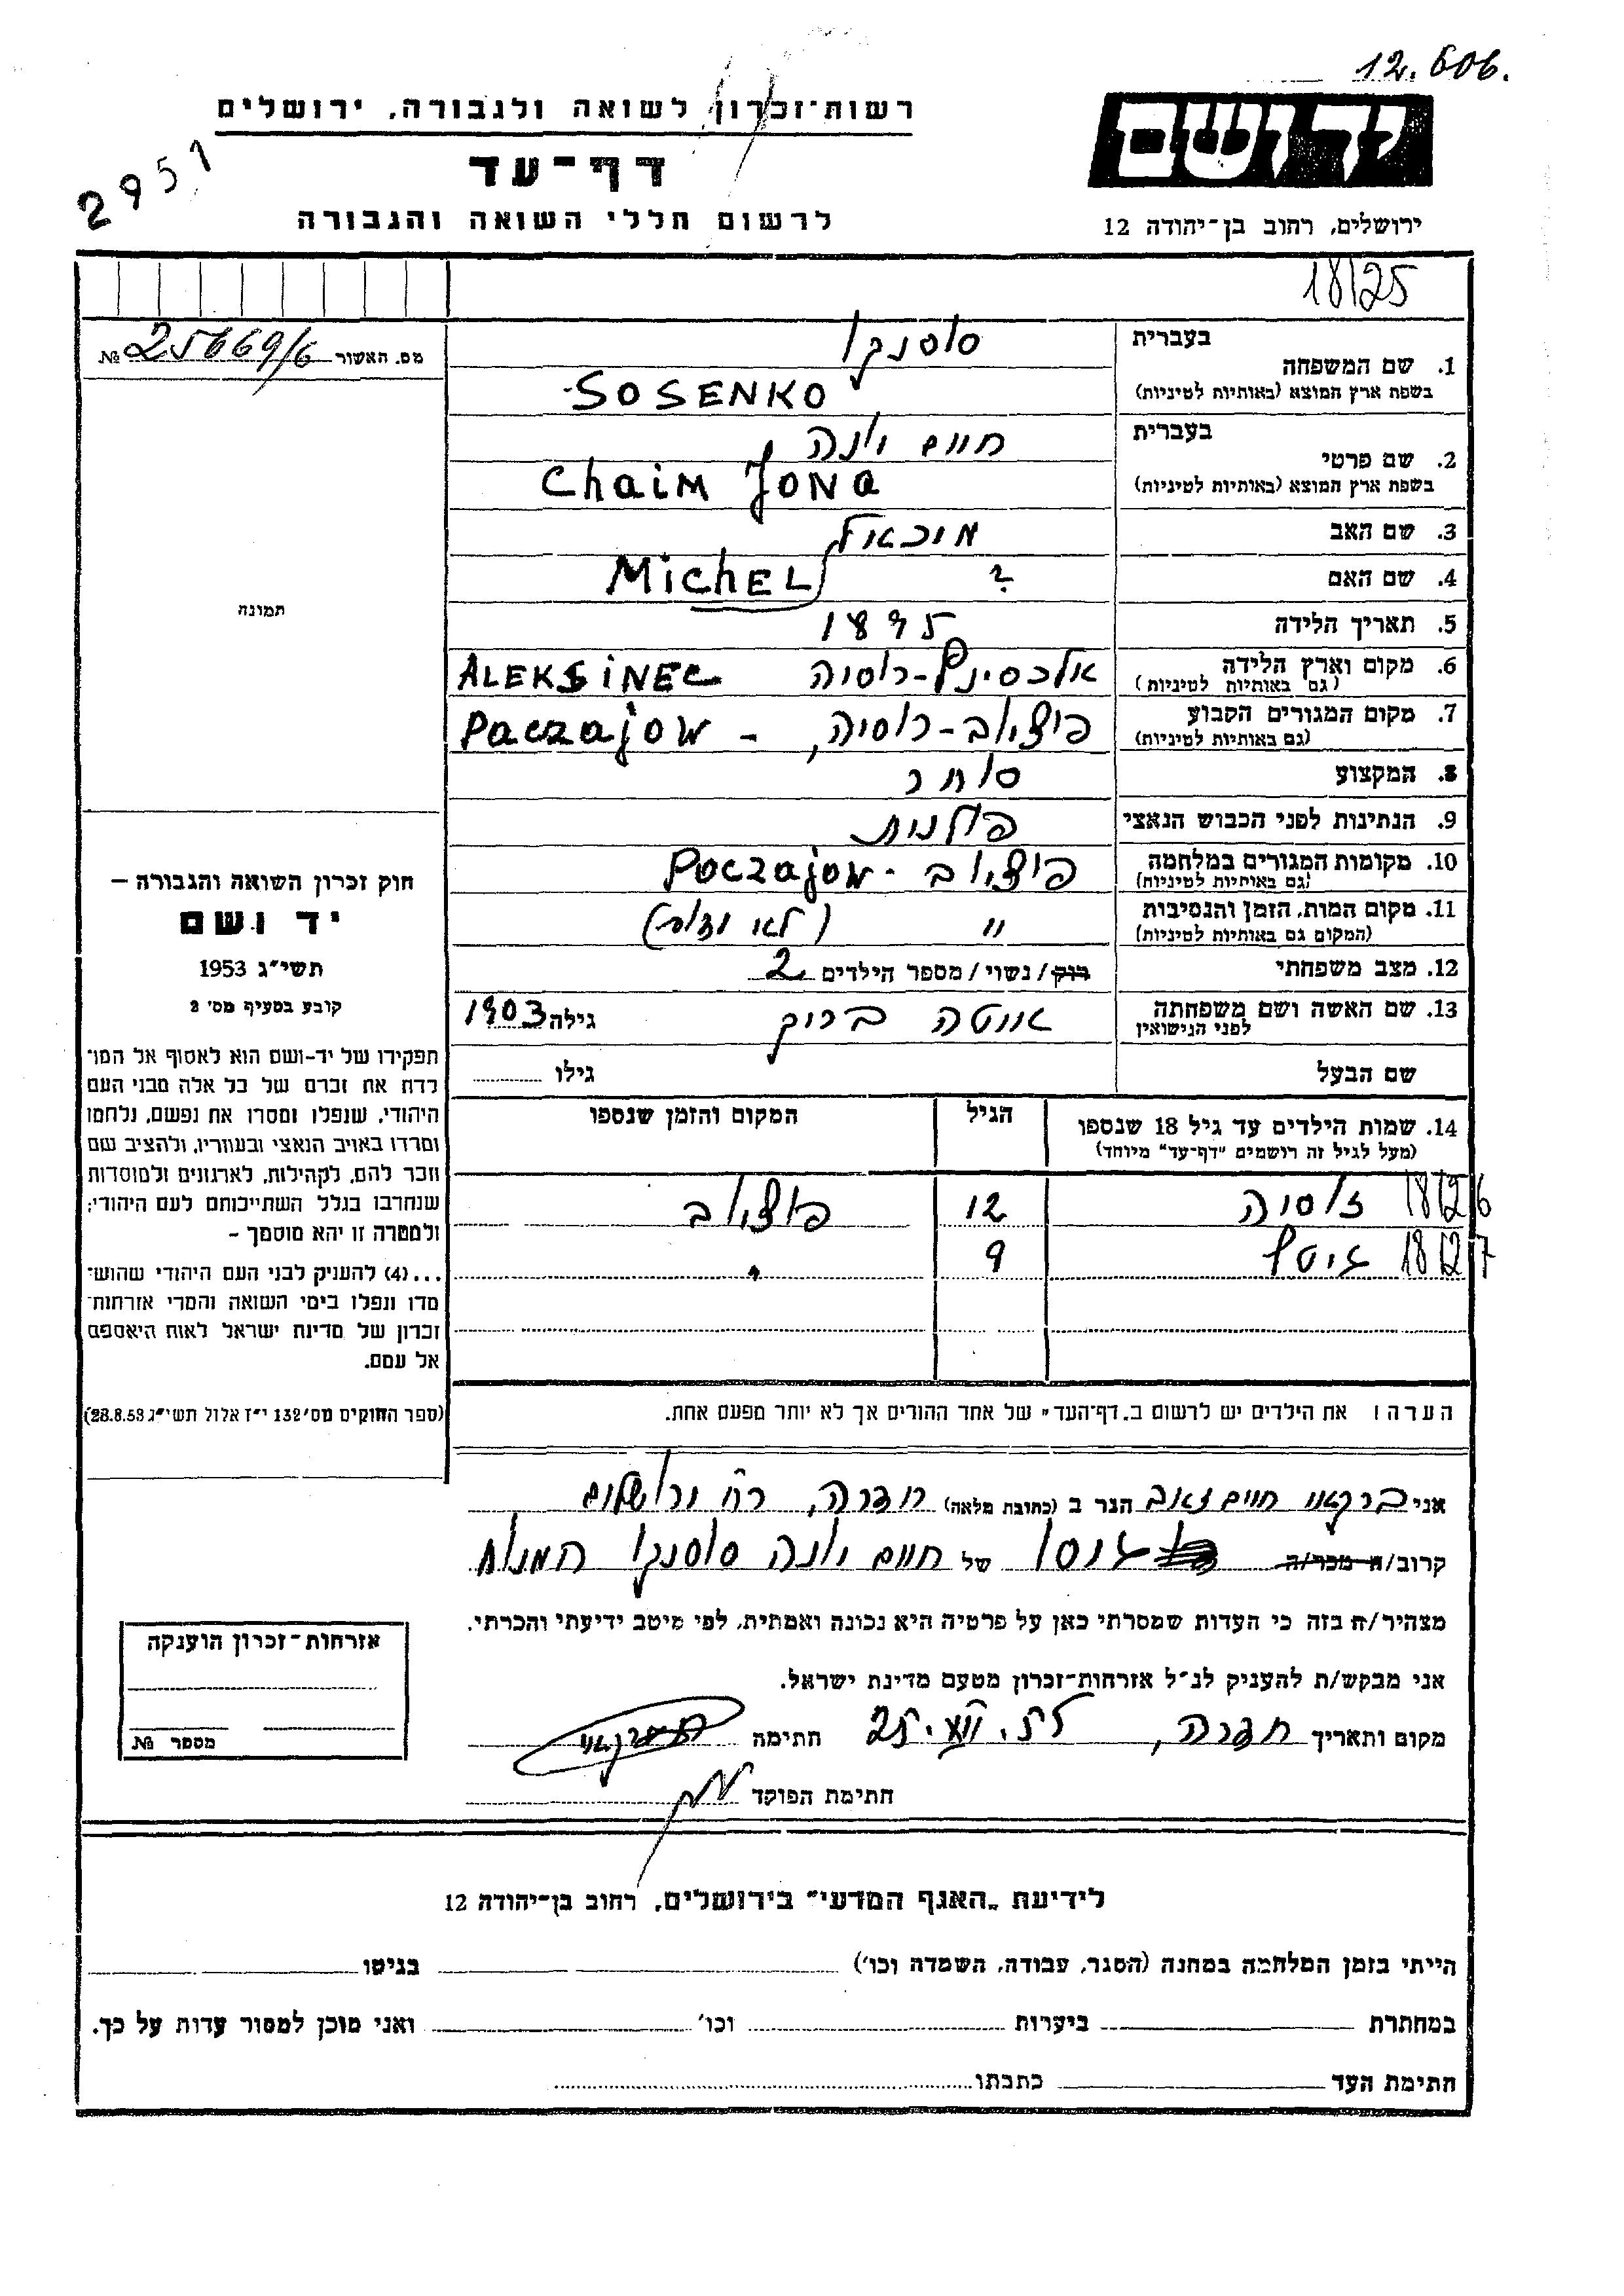 12.606.
רשות-זכרון לשואה ולגבורה, ירושלים
יד ושם
2951
דף-עד
לרשום חללי השואה והגבורה
ירושלים, רחוב בן-יהודה 12
18125
מס. האשור № 25669/6
1. שם המשפחה
בעברית סוסנקו
בשפת ארץ המוצא (באותיות לטיניות) SOSENKO
2. שם פרטי
בעברית חיים יונה
בשפת ארץ המוצא (באותיות לטיניות) Chaim Jona
3. שם האב מיכאל
Michel
4. שם האם ?
5. תאריך הלידה 1895
6. מקום וארץ הלידה אלכסינץ-רוסיה ALEKSINEC
(גם באותיות לטיניות)
7. מקום המגורים הקבוע פוצ'יוב-רוסיה, - Paczajow
(גם באותיות לטיניות)
8. המקצוע סוחר
9. הנתינות לפני הכבוש הנאצי פולנית
10. מקומות המגורים במלחמה פוצ'יוב - Poczajow
(גם באותיות לטיניות)
11. מקום המות, הזמן והנסיבות " (לא ידוע)
(המקום גם באותיות לטיניות)
12. מצב משפחתי רוק/נשוי/מספר הילדים 2
13. שם האשה ושם משפחתה
לפני הנישואין
ברוק גילה 1903
שם הבעל גילו
14. שמות הילדים עד גיל 18 שנספו
(מעל לגיל זה רושמים "דף-עד" מיוחד)
הגיל
המקום והזמן שנספו
18126 זוסיה 12 פוצ'יוב
18127 9 "
הערה: את הילדים יש לרשום ב„דף-העד" של אחד ההורים אך לא יותר מפעם אחת.
תמונה
חוק זכרון השואה והגבורה —
יד ושם
תשי"ג 1953
קובע בסעיף מס' 2
תפקידו של יד-ושם הוא לאסוף אל המו-
לדת את זכרם של כל אלה מבני העם
היהודי, שנפלו ומסרו את נפשם, נלחמו
ומרדו באויב הנאצי ובעוזריו, ולהציב שם
וזכר להם, לקהילות, לארגונים ולמוסדות
שנחרבו בגלל השתייכותם לעם היהודי;
ולמטרה זו יהא מוסמך —
...(4) להעניק לבני העם היהודי שהוש-
מדו ונפלו בימי השואה והמרי אזרחות-
זכרון של מדינת ישראל לאות היאספם
אל עמם.
(ספר החוקים מס' 132 י"ז אלול תשי"ג 28.8.53)
אני ברקאי חיים זאב הגר ב (כתובת מלאה) חדרה, רח' ירושלים
קרוב/ה מכר/ה גיסו של חיים יונה סוסנקו המנוח
מצהיר/ה בזה כי העדות שמסרתי כאן על פרטיה היא נכונה ואמתית, לפי מיטב ידיעתי והכרתי.
אני מבקש/ת להעניק לנ"ל אזרחות-זכרון מטעם מדינת ישראל.
מקום ותאריך חדרה, חתימה
חתימת הפוקד
אזרחות-זכרון הוענקה
מספר №
לידיעת „האגף המדעי" בירושלים, רחוב בן-יהודה 12
הייתי בזמן המלחמה במחנה (הסגר, עבודה, השמדה וכו') בגיטו
במחתרת ביערות וכו' ואני מוכן למסור עדות על כך.
חתימת העד כתבתו